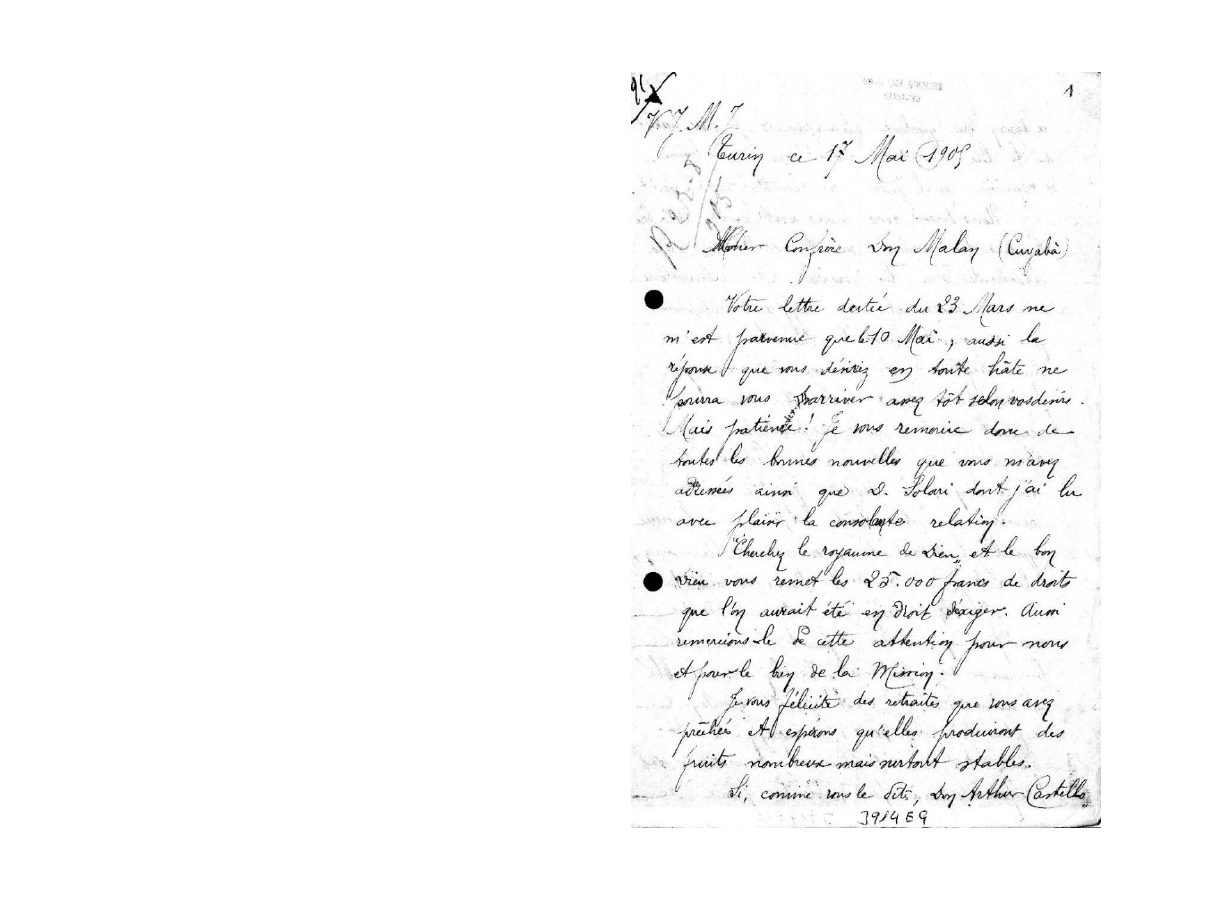 1
V. J. M. J.
Turin ce 17 Mai 1905
Mon cher Confrère Don Malan (Cuyabà)
Votre lettre datée du 23 Mars ne
m'est parvenue que le 10 Mai ; aussi la
réponse que vous désiriez en toute hâte ne
pourra vous arriver assez tôt selon vos désirs.
Mais patience ! Je vous remercie donc de
toutes les bonnes nouvelles que vous m'avez
adressées ainsi que D. Solari dont j'ai lu
avec plaisir la consolante relation.
"Cherchez le royaume de Dieu" et le bon
Dieu vous remet les 25.000 francs de droits
que l'on aurait été en droit d'exiger. Aussi
remercions-le de cette attention pour nous
et pour le bien de la Mission.
Je vous félicite des retraites que vous avez
prêchées et espérons qu'elles produiront des
fruits nombreux mais surtout stables.
Si, comme vous le dites, Don Arthur Castells
3914 E 9